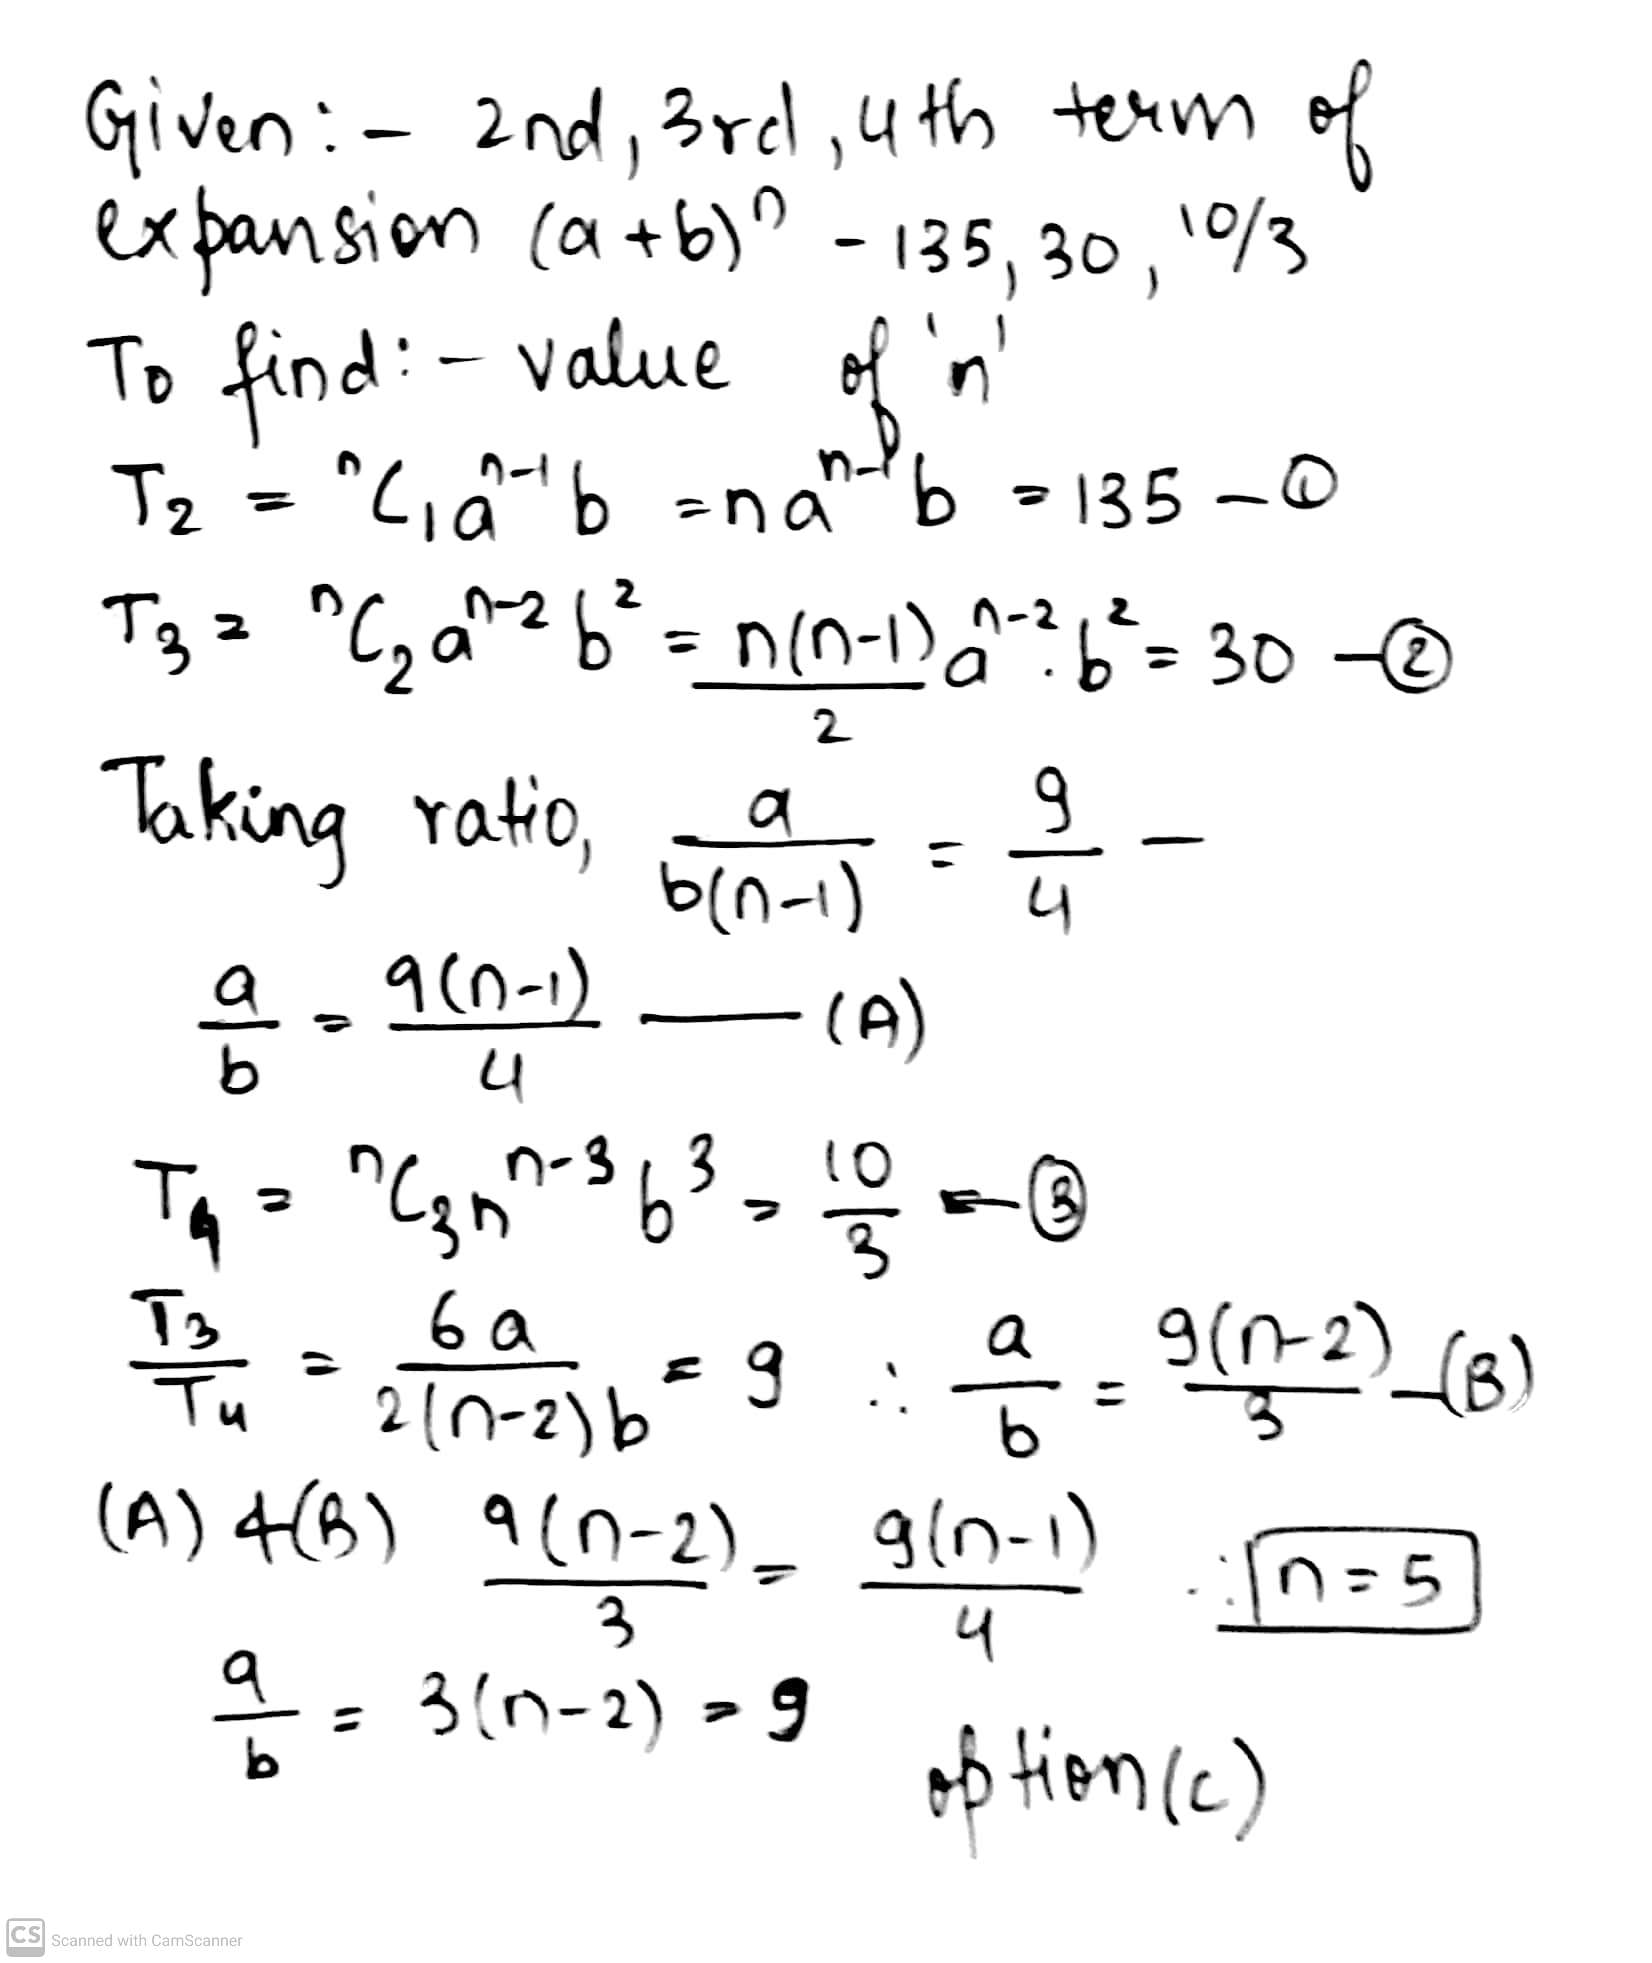 Given :- 2nd, 3rd, 4th term of
expansion (a+b)ⁿ - 135, 30, 10/3
To find :- value of 'n'
T₂ = ⁿC₁aⁿ⁻¹b = naⁿ⁻¹b = 135 - ①
T₃ = ⁿC₂aⁿ⁻²b² = n(n-1)/2 aⁿ⁻².b² = 30 - ②
Taking ratio, a/b(n-1) = 9/4 -
a/b = 9(n-1)/4 — (A)
T₄ = ⁿC₃nⁿ⁻³b³ = 10/3 - ③
T₃/T₄ = 6a/2(n-2)b = 9 ∴ a/b = 9(n-2)/3 - (B)
(A) & (B) 9(n-2)/3 = 9(n-1)/4 ∴ n = 5
a/b = 3(n-2) = 9
option (c)
CS Scanned with CamScanner